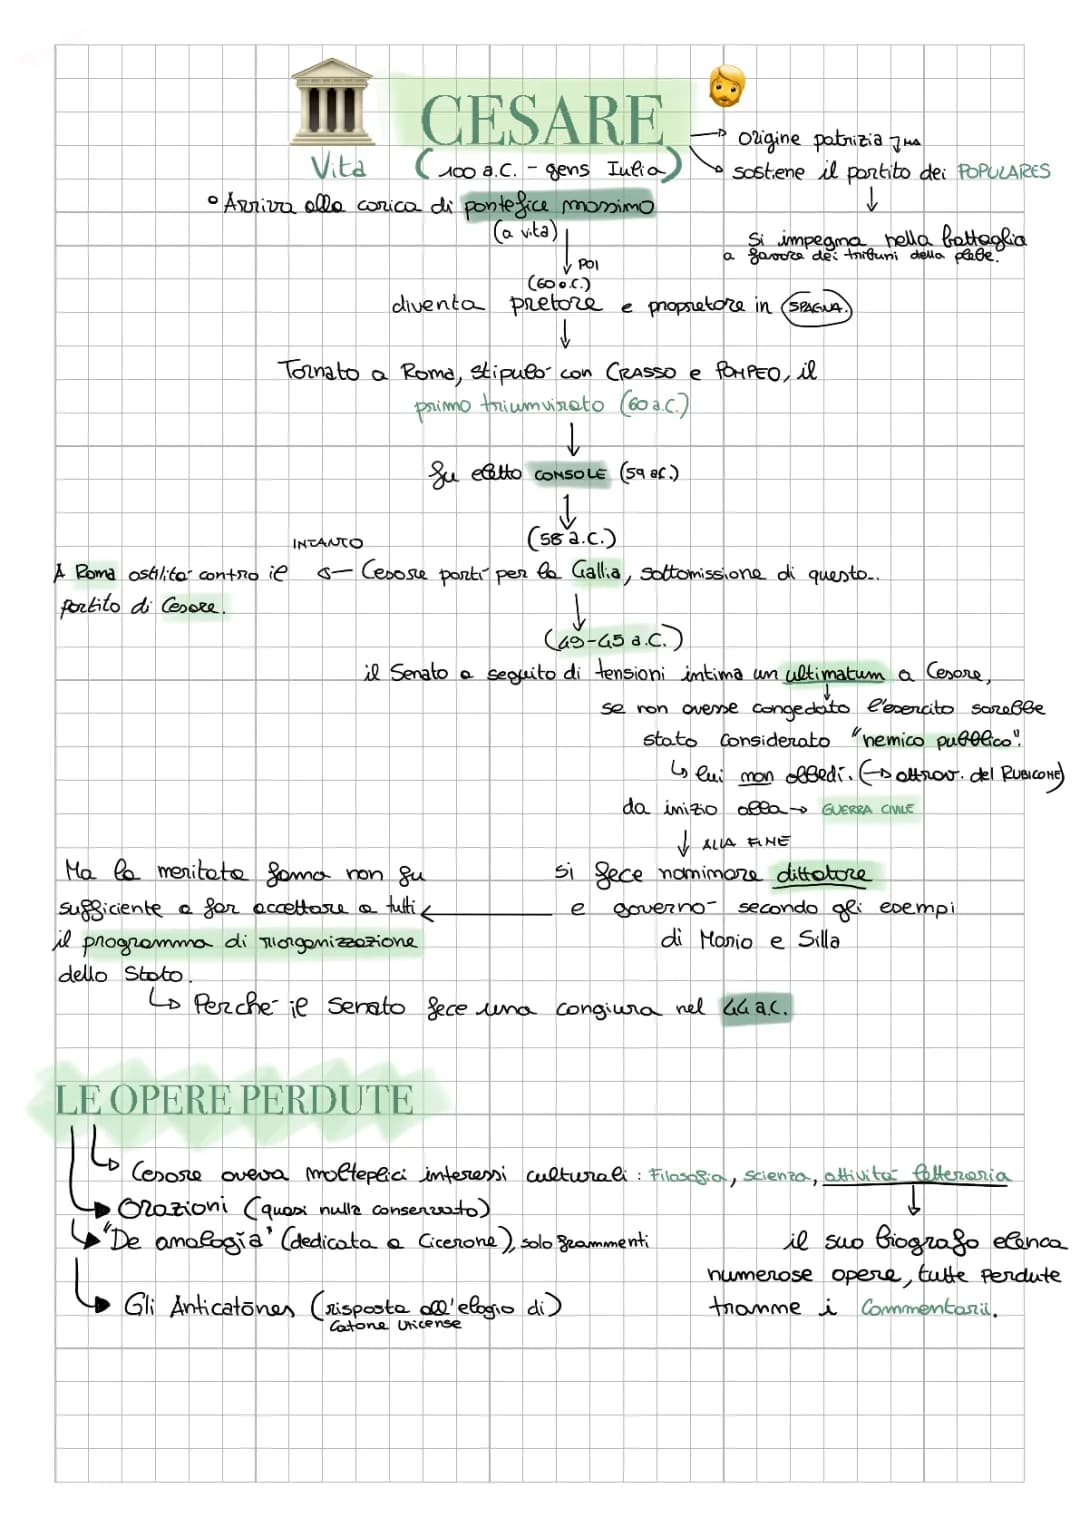 CESARE
Vita
(100 a.C. - gens Iulia)
origine patrizia ma
sostiene il partito dei POPULARES
Si impegna nella battaglia
a favore dei tribuni della plebe.
° Arriva alla carica di pontefice massimo
(a vita)
POI
(60 a.C.)
diventa pretore e propretore in SPAGNA.
Tornato a Roma, stipulò con CRASSO e POMPEO, il
primo triumvirato (60 a.C.)
fu eletto CONSOLE (59 a.C.)
(58 a.C.)
INTANTO
A Roma ostilità contro il
partito di Cesare.
Cesare partì per la Gallia, sottomissione di questo..
(49-45 a.C.)
il Senato a seguito di tensioni intima un ultimatum a Cesare,
se non avesse congedato l'esercito sarebbe
stato considerato "nemico pubblico".
lui non obbedì. (→ attrav. del RUBICONE)
da inizio alla → GUERRA CIVILE
ALLA FINE
si fece nominare dittatore
e governò secondo gli esempi
di Mario e Silla
Ma la meritata fama non fu
sufficiente a far accettare a tutti
il programma di riorganizzazione
dello Stato.
Perché il Senato fece una congiura nel 44 a.C.
LE OPERE PERDUTE
Cesare aveva molteplici interessi culturali: Filosofia, scienza, attività letteraria
Orazioni (quasi nulla conservato)
"De analogia" (dedicata a Cicerone), solo frammenti
Gli Anticatōnes (risposta all'elogio di)
Catone Uticense
il suo biografo elenca
numerose opere, tutte perdute
tranne i Commentarii.